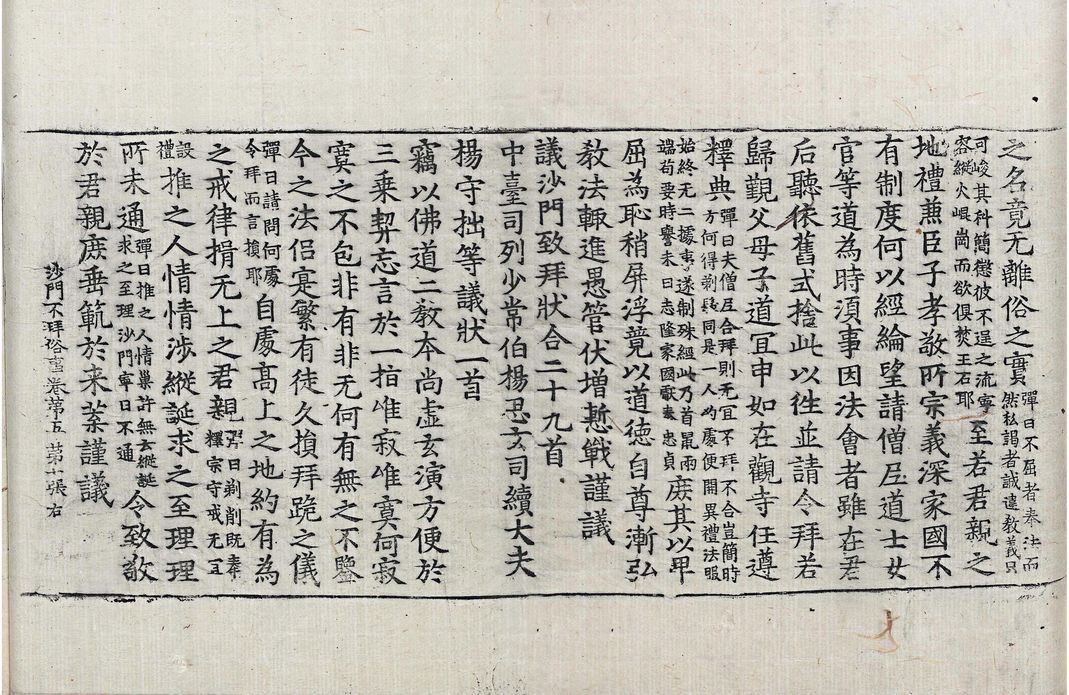 之名竟无離俗之實彈日不屈者奉法而然私謁者誠違教義只
可峻其科簡懲彼不逞之流寧容縱火崐崗而欲俱焚玉石耶至若君親之
地禮兼臣子孝敬所宗義深家國不
有制度何以經綸望請僧尼道士女
官等道為時須事因法會者雖在君
后聽依舊式捨此以徃並請令拜若
歸覲父母子道宜申如在觀寺任遵
釋典彈曰夫僧尼合拜則无宜不拜不合豈簡時方何得剃髮同是一人約處便開異禮法服
始終无二據事遂制殊經此乃首鼠兩端苟要時譽未曰志隆家國獻表患貞庶其以卑
屈為恥稍屏浮競以道德自尊漸弘
教法輒進愚管伏增慙戰謹議
議沙門致拜狀合二十九首
中臺司列少常伯楊思玄司續大夫
楊守拙等議狀一首
竊以佛道二教本尚虛玄演方便於
三乗契忘言於一指唯寂唯寞何寂
寞之不包非有非无何有無之不鑒
今之法侶寔繁有徒久損拜跪之儀
彈曰請問何處令拜而言損耶自處高上之地約有為
之戒律揖无上之君親彈曰剃削既奉釋宗守戒无宜
設禮推之人情情涉縱誕求之至理理
所未通彈日推之人情巢許無云縱誕求之至理沙門寧日不通令致敬
於君親庶垂範於来葉謹議
沙門不拜俗事卷第五 第十張 右